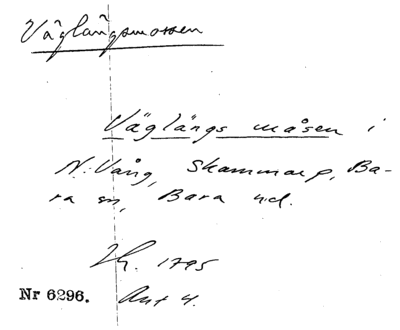 Väglångsmossen
Väglångs måsen i
N: Vång, Skammarp, Ba-
ra sn, Bara hd.
Lh. 1795
Nr 6296. Akt 4.